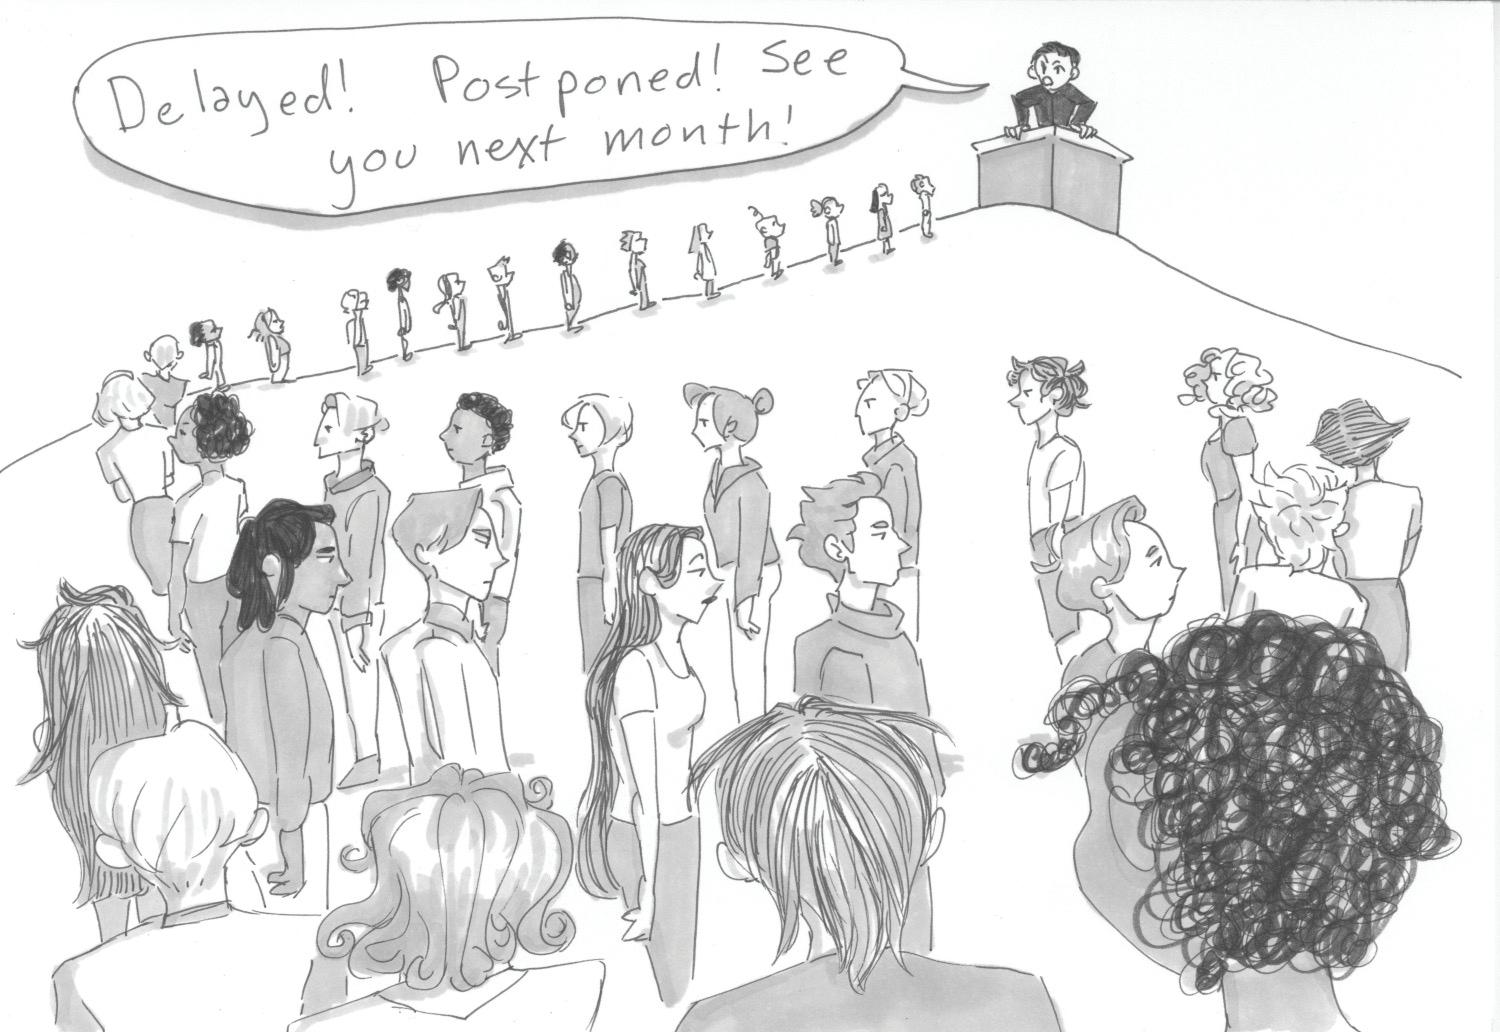 Delayed! Postponed! See
you next month!